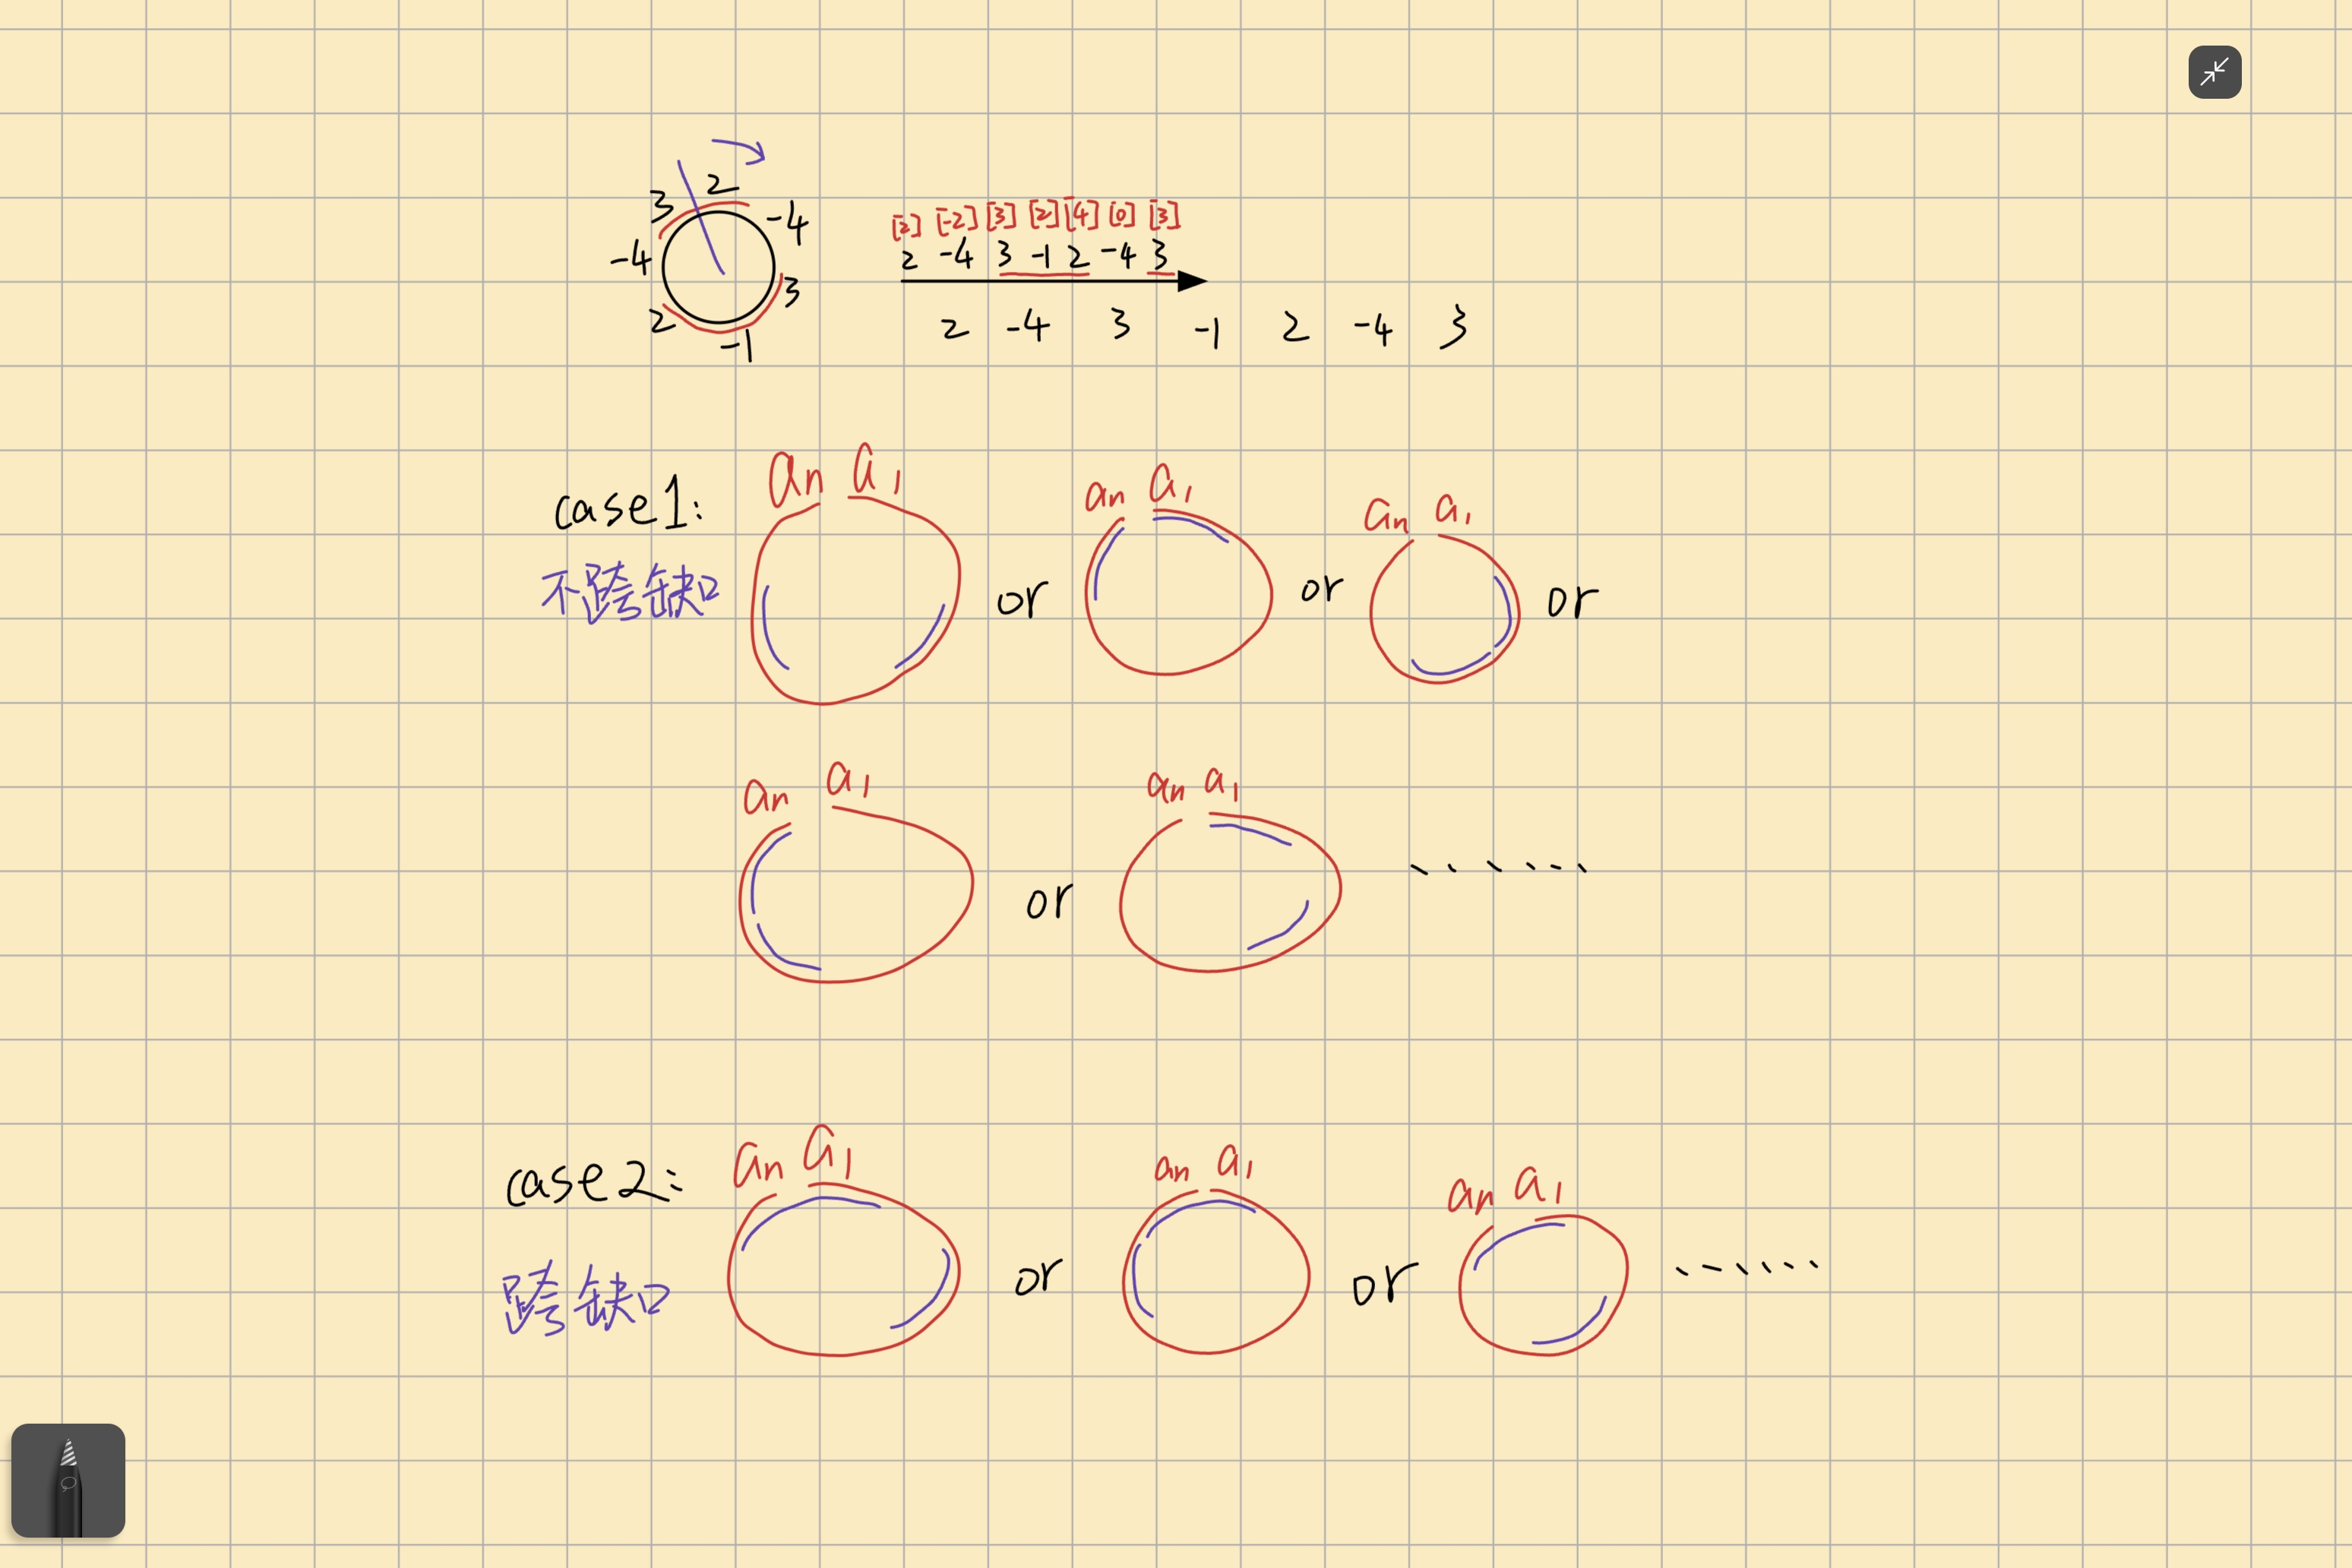 3 2 -4
[2] [-2] [3] [2] [4] [0] [3]
-4 2 -4 3 -1 2 -4 3
2 -1 3
2 -4 3 -1 2 -4 3
case1: an a1 an a1 an a1
不跨缺口 or or or
an a1 an a1
or ......
case2: an a1 an a1 an a1
跨缺口 or or ......